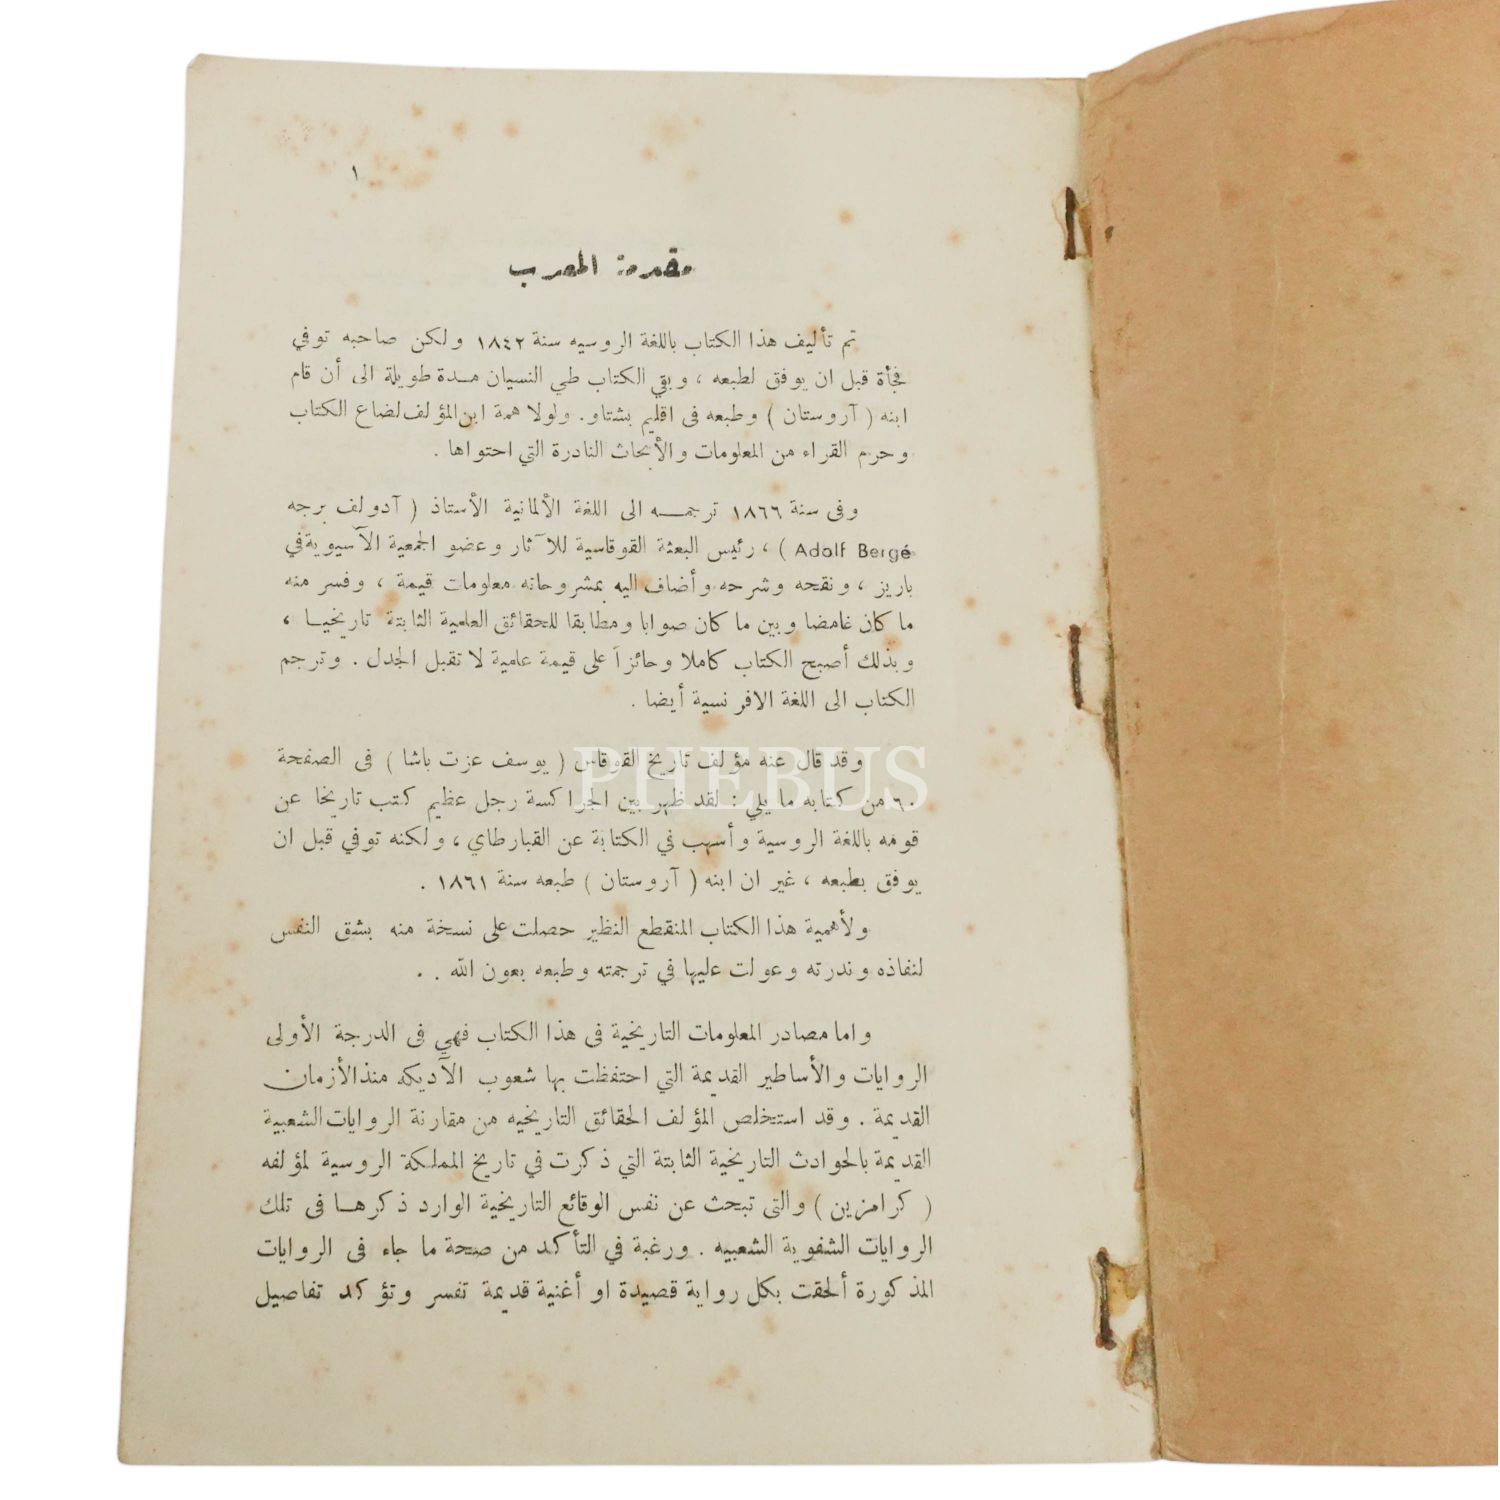 ١
مقدمة المعرب
تم تأليف هذا الكتاب باللغة الروسيه سنة ١٨٤٢ ولكن صاحبه توفي
فجأة قبل ان يوفق لطبعه ، وبقي الكتاب طي النسيان مدة طويلة الى أن قام
ابنه ( آروستان ) وطبعه فى اقليم بشتاو. ولولا همة ابن المؤلف لضاع الكتاب
وحرم القراء من المعلومات والأبحاث النادرة التي احتواها .
وفى سنة ١٨٦٦ ترجمه الى اللغة الألمانية الأستاذ ( آدولف برجه
Adolf Bergé ) ، رئيس البعثة القوقاسية للآثار وعضو الجمعية الآسيوية في
باريز ، ونقحه وشرحه وأضاف اليه بمشروحاته معلومات قيمة ، وفسر منه
ما كان غامضا وبين ما كان صوابا ومطابقا للحقائق العلمية الثابتة تاريخيا ،
وبذلك أصبح الكتاب كاملا وحائزاً على قيمة علمية لا تقبل الجدل . وترجم
الكتاب الى اللغة الافرنسية أيضا .
وقد قال عنه مؤلف تاريخ القوقاس ( يوسف عزت باشا ) فى الصفحة
٦٠ من كتابه ما يلي : لقد ظهر بين الجراكسة رجل عظيم كتب تاريخا عن
قومه باللغة الروسية وأسهب في الكتابة عن القبارطاي ، ولكنه توفي قبل ان
يوفق بطبعه ، غير ان ابنه ( آروستان ) طبعه سنة ١٨٦١ .
ولأهمية هذا الكتاب المنقطع النظير حصلت على نسخة منه بشق النفس
لنفاذه وندرته وعولت عليها في ترجمته وطبعه بعون الله . .
واما مصادر المعلومات التاريخية فى هذا الكتاب فهي فى الدرجة الأولى
الروايات والأساطير القديمة التي احتفظت بها شعوب الآديكه منذ الأزمان
القديمة . وقد استخلص المؤلف الحقائق التاريخيه من مقارنة الروايات الشعبية
القديمة بالحوادث التاريخية الثابتة التي ذكرت في تاريخ المملكة الروسية لمؤلفه
( كرامزين ) والتى تبحث عن نفس الوقائع التاريخية الوارد ذكرها فى تلك
الروايات الشفوية الشعبيه . ورغبة في التأكد من صحة ما جاء فى الروايات
المذكورة ألحقت بكل رواية قصيدة او أغنية قديمة تفسر وتؤكد تفاصيل
PHEBUS